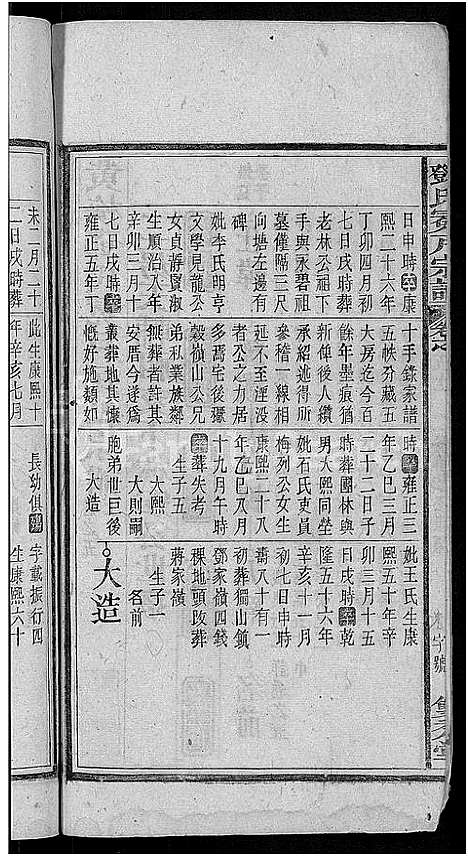 日申時卒康
熙二十六年
丁卯四月初
七日戌時葬
老林公祖下
手與永碧祖
墓僅隔三尺
向塘左邊有
碑
妣李氏明亨
文學見龍公
女貞靜賢淑
生順治八年
辛卯三月十
七日戌時卒
雍正五年丁
十手錄家譜
五帙分藏五
大房迄今百
餘年墨痕猶
新俾後人纘
承紹述所得
參稽一線相
延不至湮沒
者公之力居
多焉宅後獺
穀嶺山公兄
弟私業族鄰
無葬者許其
安厝今遂成
叢葬地其慷
慨好施類如
時卒雍正三
年乙巳三月
二十二日子
時葬園林與
男大熙同塋
妣石氏吏員
梅列公女生
康熙二十八
年乙巳八月
十九月午時
卒葬失考
生子五
大熙
大則嗣
胞弟世巨後
大造
妣王氏生康
熙五十年辛
卯三月十五
日戌時卒乾
隆五十六年
辛亥十一月
初七日申時
壽八十有一
初葬獨山鎮
鄧家嶺四錢
裸地頭改葬
蔣家嶺
生子一
名前
大造
未二月二十
二日戌時葬
此生康熙十
年辛亥七月
長幼俱殤
字載振行四
生康熙六十